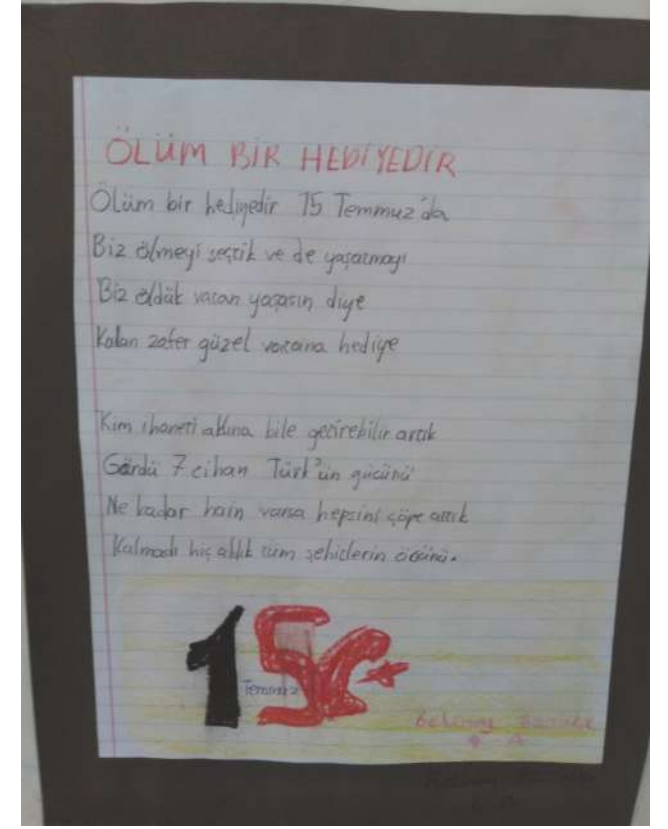 ÖLÜM BİR HEDİYEDİR
Ölüm bir hediyedir 15 Temmuz'da
Biz ölmeyi seçtik ve de yaşatmayı
Biz öldük vatan yaşasın diye
Kalan zafer güzel vatana hediye
Kim ihaneti aklına bile getirebilir artık
Gördü 7 cihan Türk'ün gücünü
Ne kadar hain varsa hepsini çöpe attık
Kalmadı hiç aldık tüm şehitlerin öcünü.
15
Temmuz
A